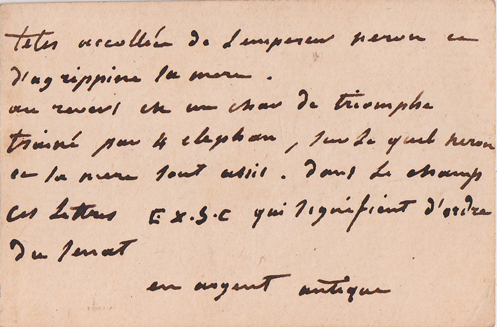 tetes accollée de Lempereur neron et
d'agrippine la mere.
au revers est un char de triomphe
trainé par 4 elephan, sur Le quel neron
et la mere sont assis. dans Le champ
ces Lettres EX.S.C qui signifient d'ordre
du senat
en argent antique